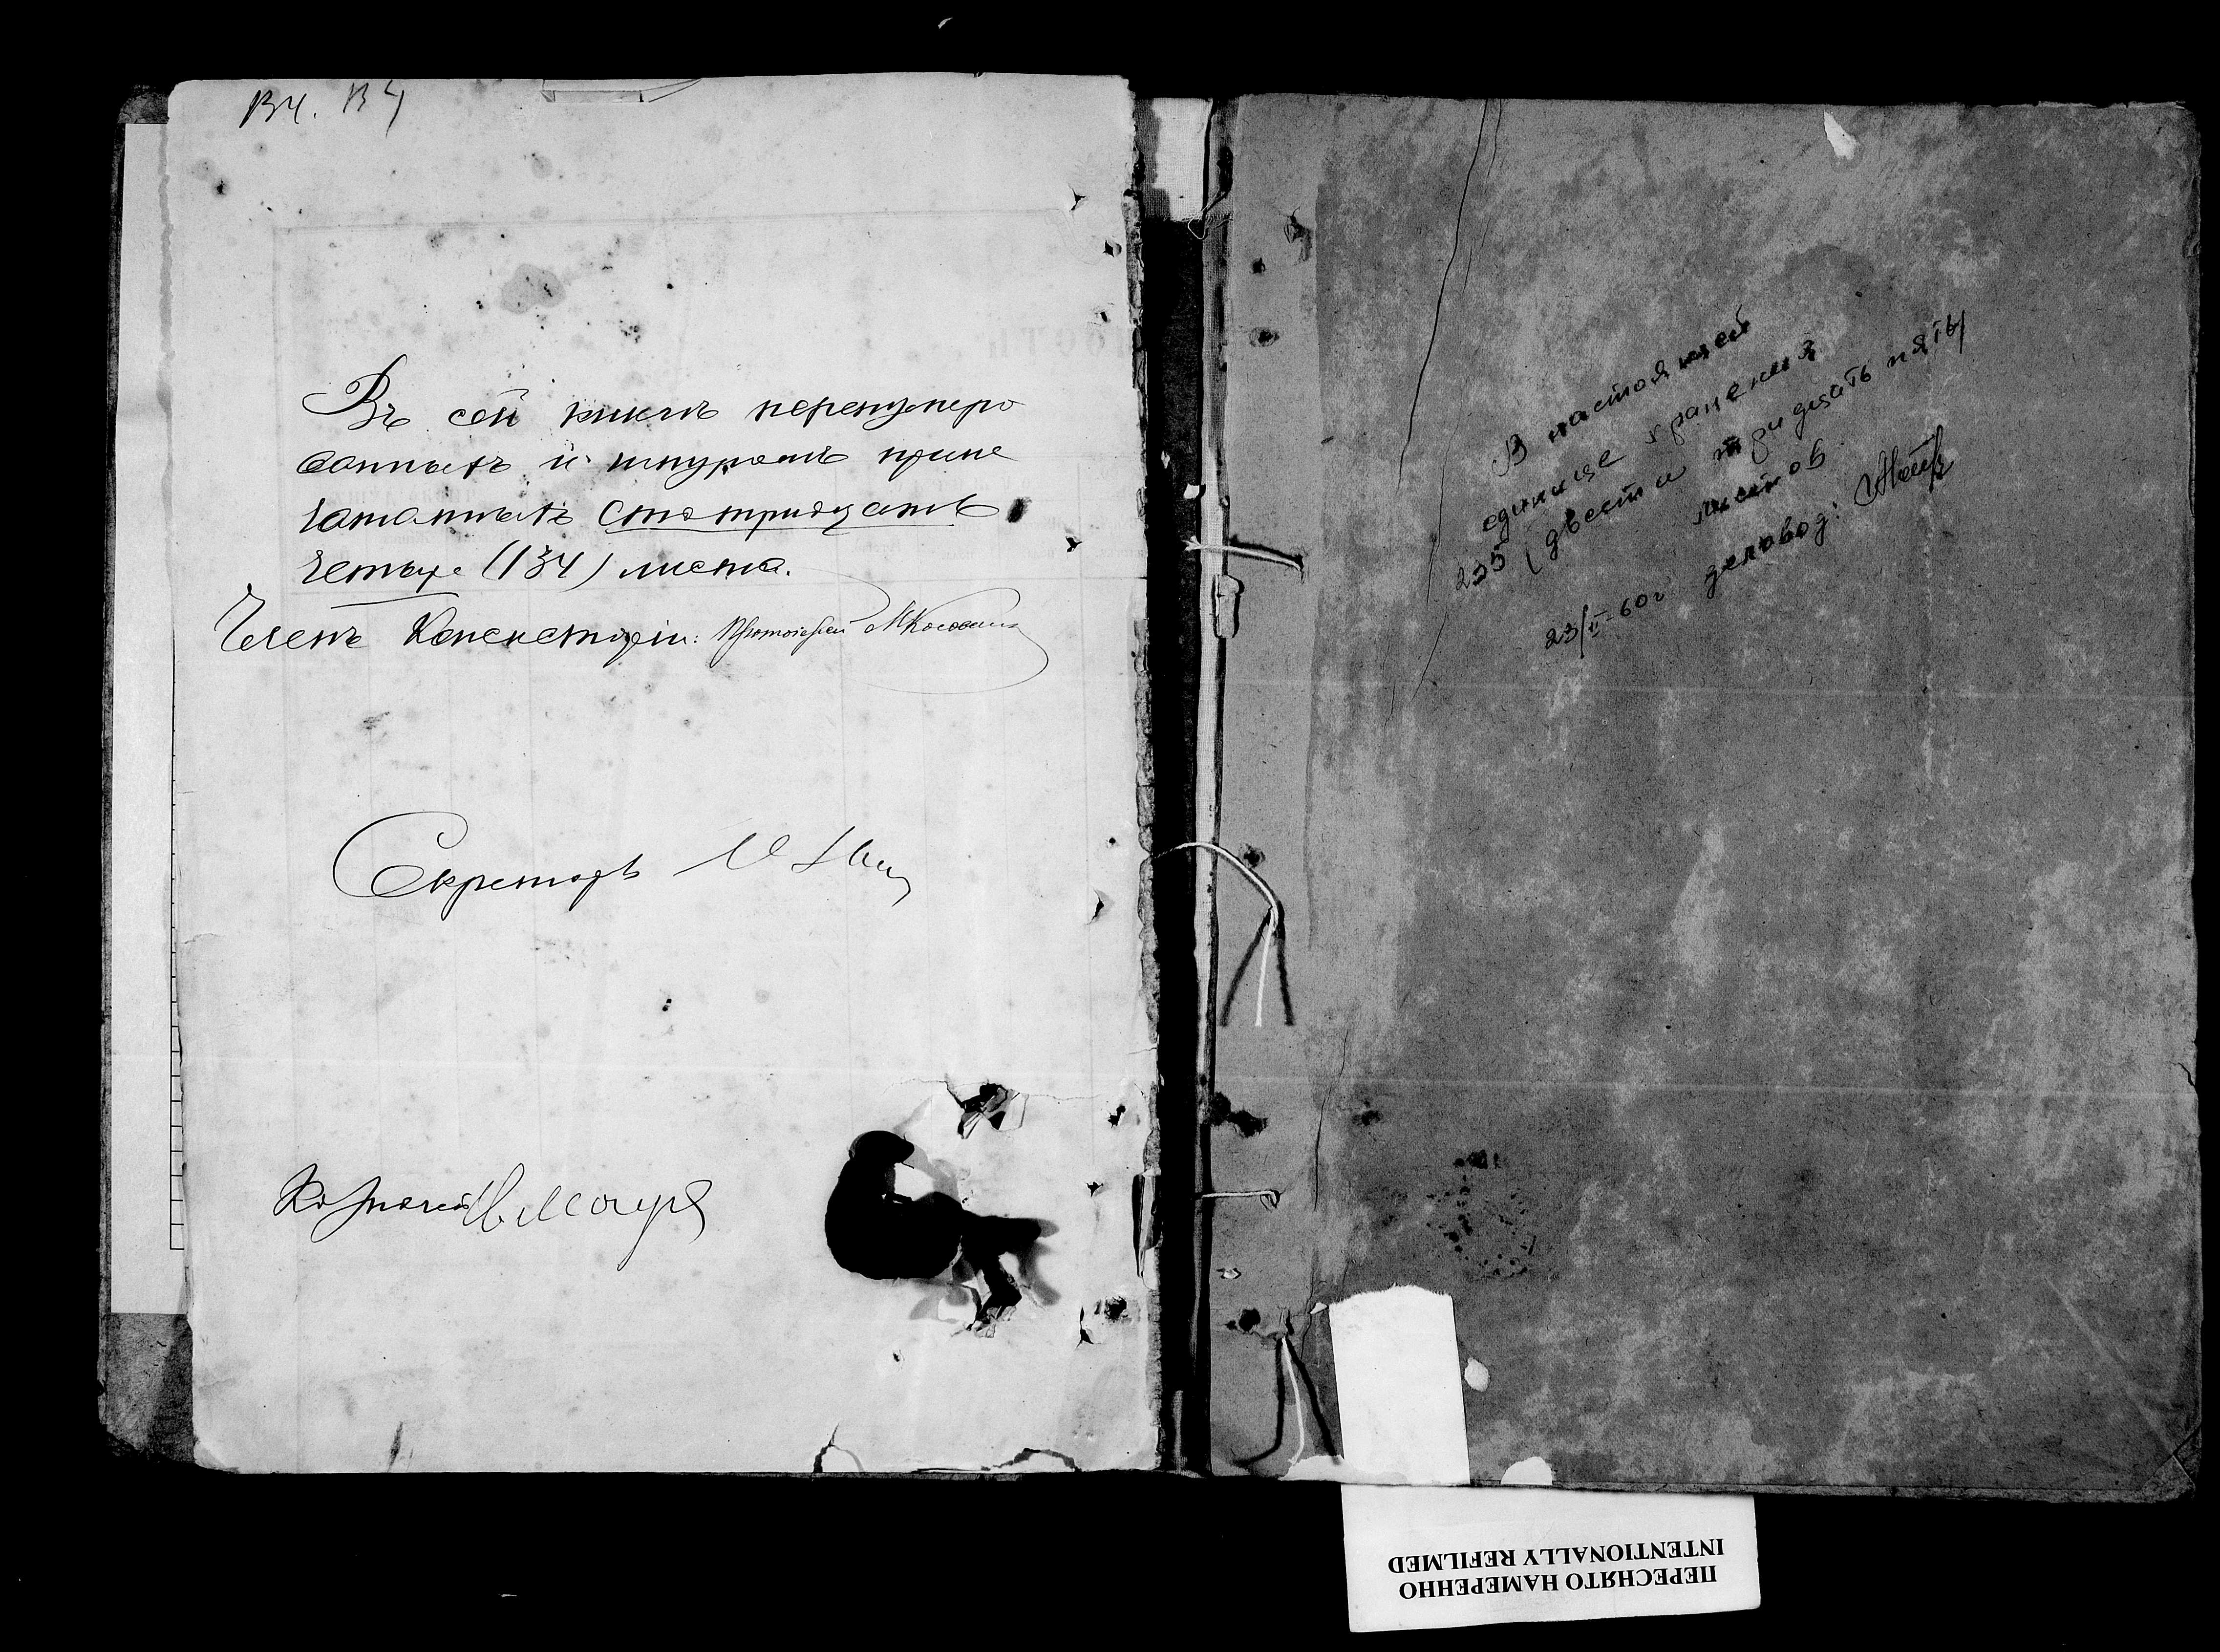 Въ сей книгѣ перенумеро
ванныхъ и шнуромъ припе
чатанныхъ стотридцать
четыре (134) листа.
Членъ Консисторіи: Протоіерей
Секретарь
Казначей
В настоящей
единице хранения
235 (двести тридцать пять)
листов
23/II-60г деловод:
ПЕРЕСНЯТО НАМЕРЕННО
INTENTIONALLY REFILMED